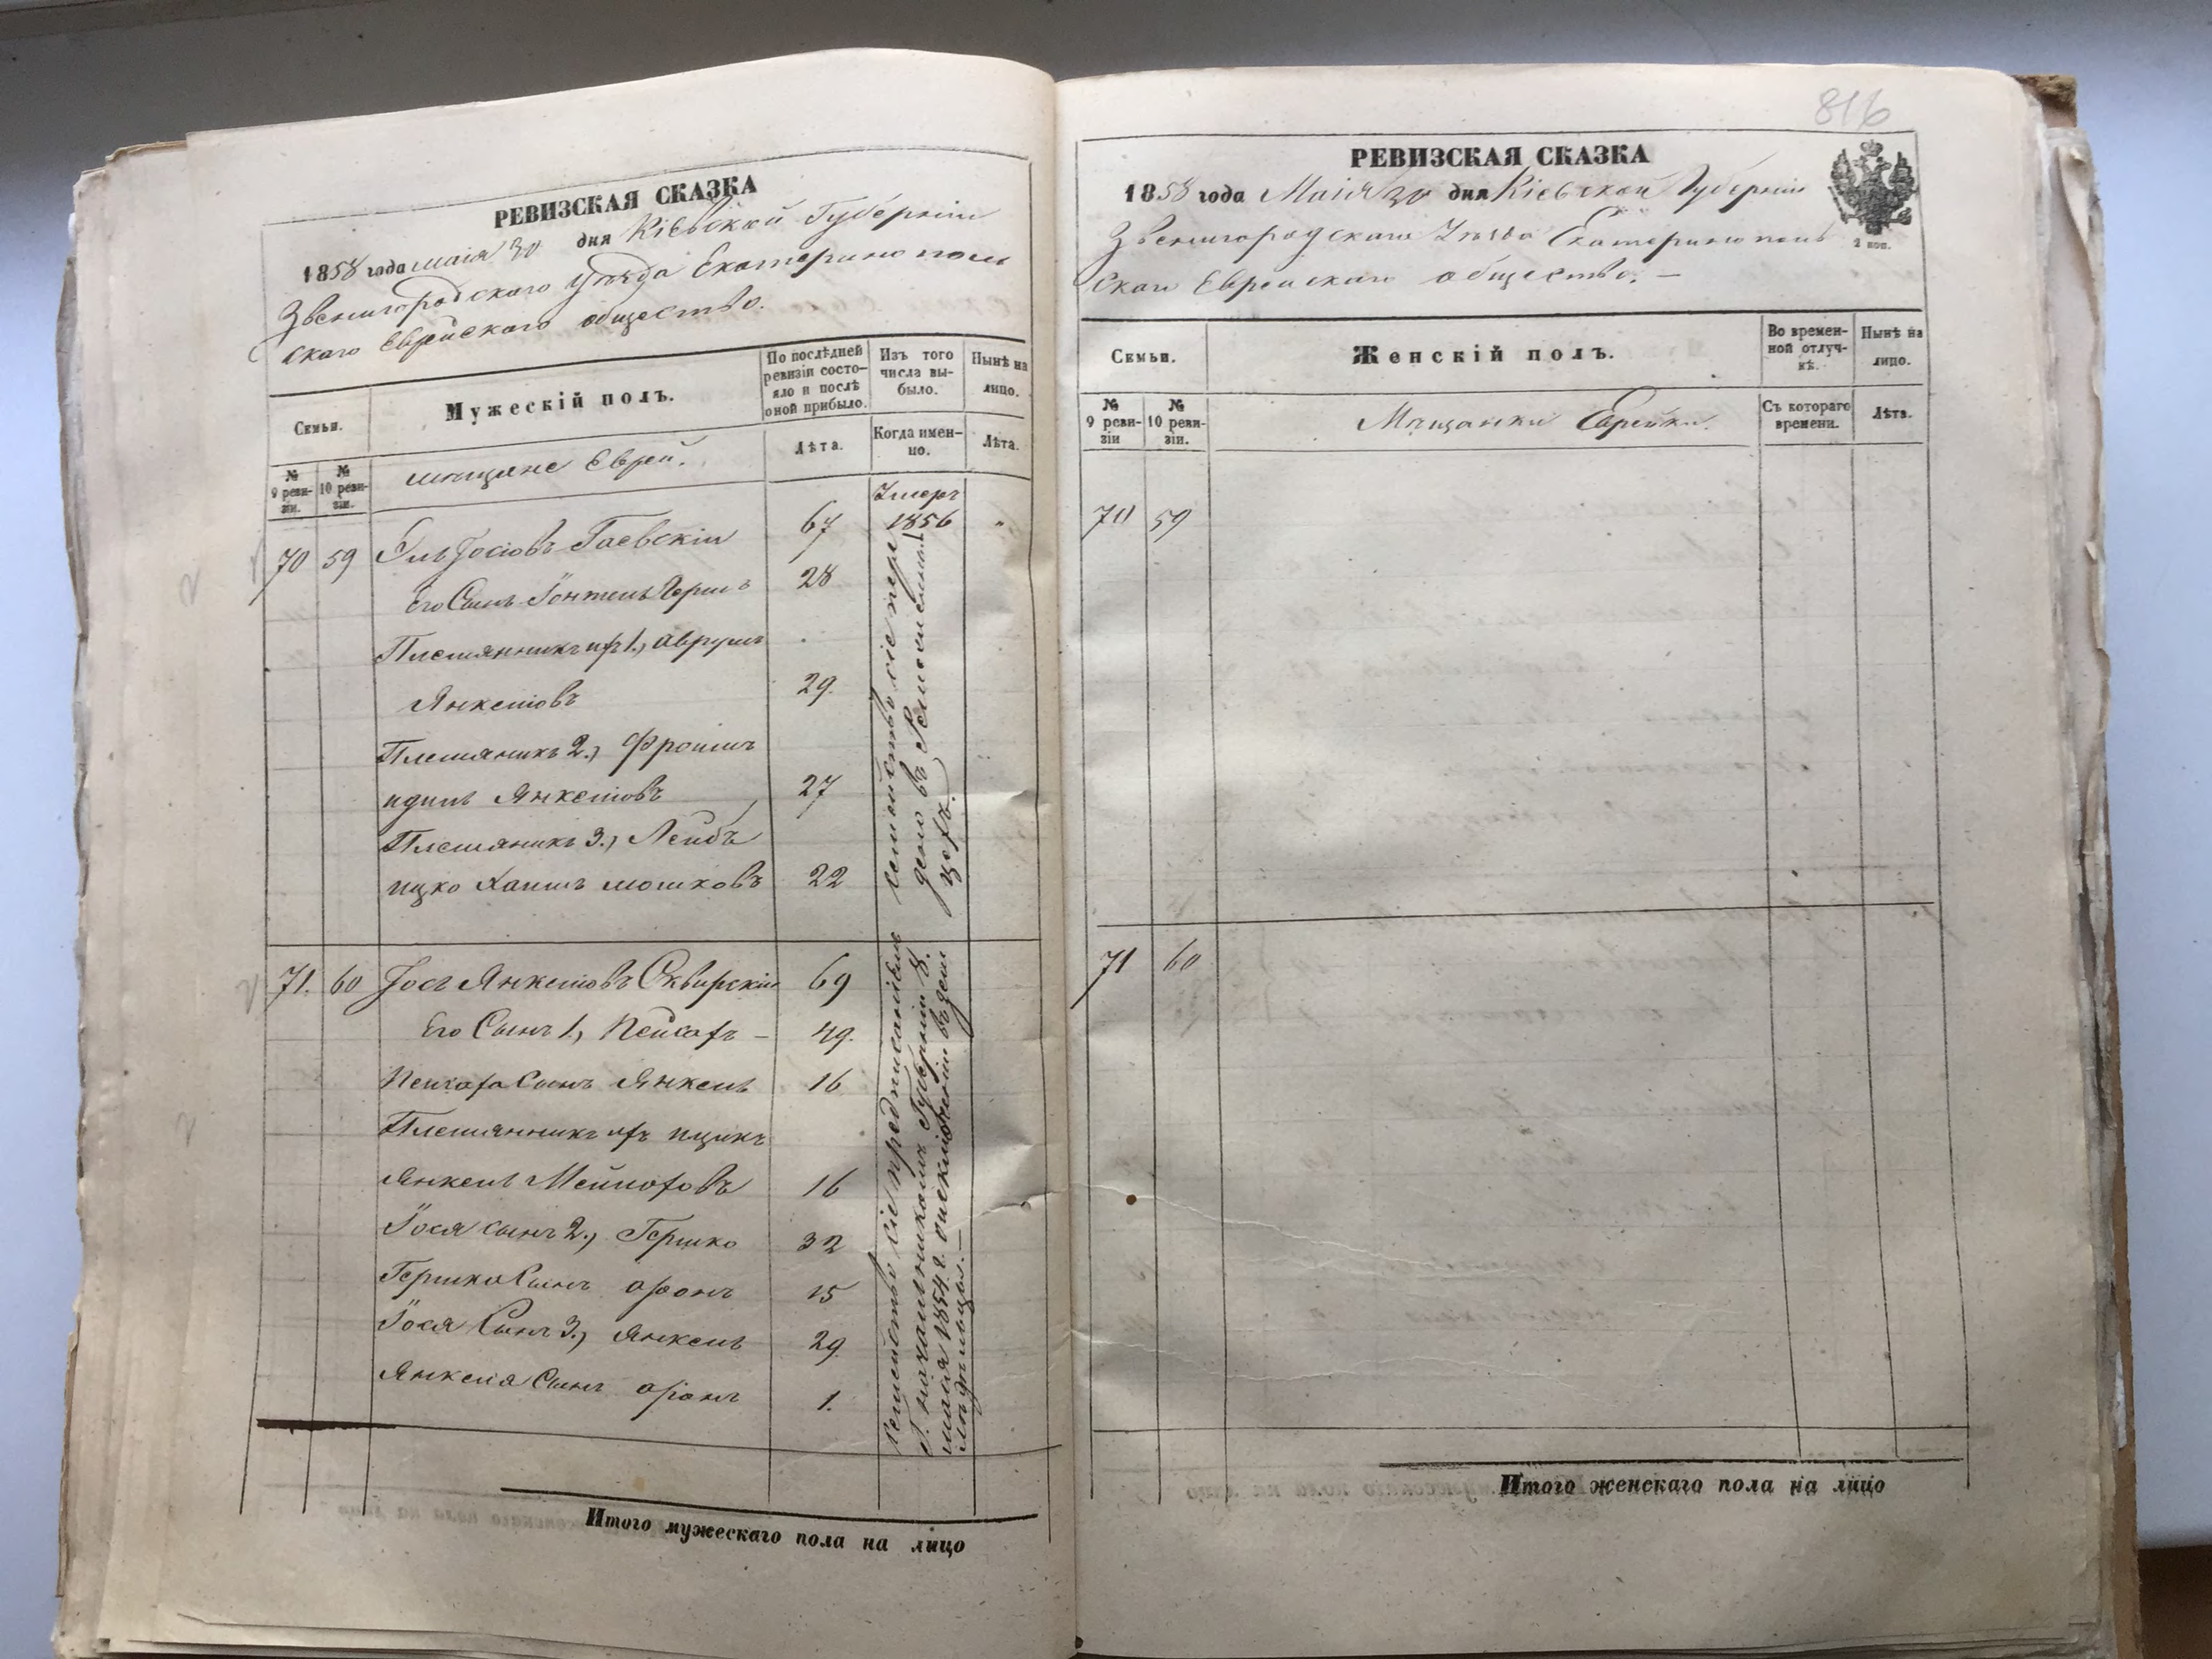 РЕВИЗСКАЯ СКАЗКА
1858 года маія 30 дня Кіевской Губерніи
Звенигородскаго уѣзда Екатеринополь
скаго Еврейскаго общества.
Семьи.
Мужескій полъ.
По послѣдней ревизіи состояло и послѣ оной прибыло.
Изъ того числа выбыло.
Нынѣ на лицо.
№ 9 ревизіи.
№ 10 ревизіи.
мѣщане Евреи.
Лѣта.
Когда именно.
Лѣта.
70 59 Іосіовъ Гаевскій 67 Умеръ 1856 "
Его Сынъ Герш 28
Племянникъ ихъ 1., Аврумъ
Янкеліовъ 29.
Племяникъ 2., Фроимъ
Юдиль Янкеліовъ 27
Племяникъ 3., Лейбъ
ицко Хаимъ мошковъ 22
семейство сіе пере
дено въ
цехъ.
71. 60 Іосъ Янкеліовъ Сквирскій 69
Его Сынъ 1., Пейсахъ - 49.
Пейсаха Сынъ Янкель 16
Племянникъ ихъ ицикъ
Янкель Мейпоховъ 16
Іося сынъ 2., Гершко 32
Гершка Сынъ аронъ 15
Іося Сынъ 3., Янкель 29
Янкеля Сынъ аронъ 1.
Семейство сіе предписаніемъ
Г. начальникомъ Губерніи 8.
маія 1854. г. въ
Итого мужескаго пола на лицо
816
РЕВИЗСКАЯ СКАЗКА
1858 года Маія 30 дня Кіевской Губерніи
2 коп.
Звенигородскаго Уѣзда Екатеринополь
скаго Еврейскаго общества. –
Семьи.
Женскій полъ.
Во временной отлучкѣ.
Нынѣ на лицо.
№ 9 ревизіи
№ 10 ревизіи.
Мѣщанки Еврейки.
Съ котораго времени.
Лѣта.
70 59
71 60
Итого женскаго пола на лицо